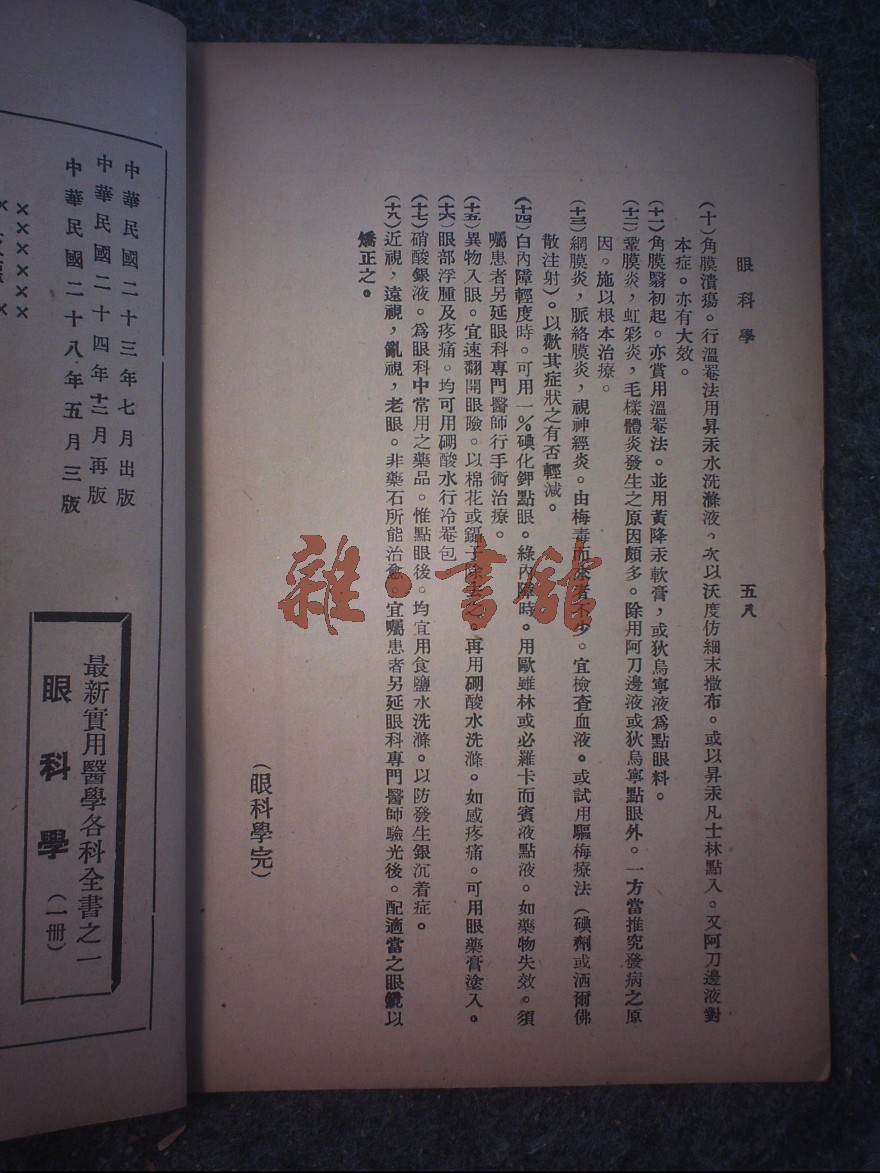 眼科學
五八
(十)角膜潰瘍。行溫罨法用昇汞水洗滌液、次以沃度仿細末撒布。或以昇汞凡士林點入。又阿刀邊液對
本症。亦有大效。
(十一)角膜翳初起。亦賞用溫罨法。並用黃降汞軟膏，或狄烏寧液爲點眼料。
(十二)鞏膜炎，虹彩炎，毛樣體炎發生之原因頗多。除用阿刀邊液或狄烏寧點眼外。一方當推究發病之原
因。施以根本治療。
(十三)網膜炎，脈絡膜炎，視神經炎。由梅毒而來者不少。宜檢查血液。或試用驅梅療法(碘劑或洒爾佛
散注射)。以歡其症狀之有否輕減。
(十四)白內障輕度時。可用一%碘化鉀點眼。綠內障時。用歐雖林或必羅卡而賓液點液。如藥物失效。須
囑患者另延眼科專門醫師行手術治療。
(十五)異物入眼。宜速翻開眼瞼。以棉花或鑷子除去之。再用硼酸水洗滌。如感疼痛。可用眼藥膏塗入。
(十六)眼部浮腫及疼痛。均可用硼酸水行冷罨包。
(十七)硝酸銀液。爲眼科中常用之藥品。惟點眼後。均宜用食鹽水洗滌。以防發生銀沉着症。
(十八)近視，遠視，亂視，老眼。非藥石所能治愈。宜囑患者另延眼科專門醫師驗光後。配適當之眼鏡以
矯正之。
(眼科學完)
中華民國二十三年七月出版
中華民國二十四年十二月再版
中華民國二十八年五月三版
最新實用醫學各科全書之一
眼科學(一冊)
雜·書館